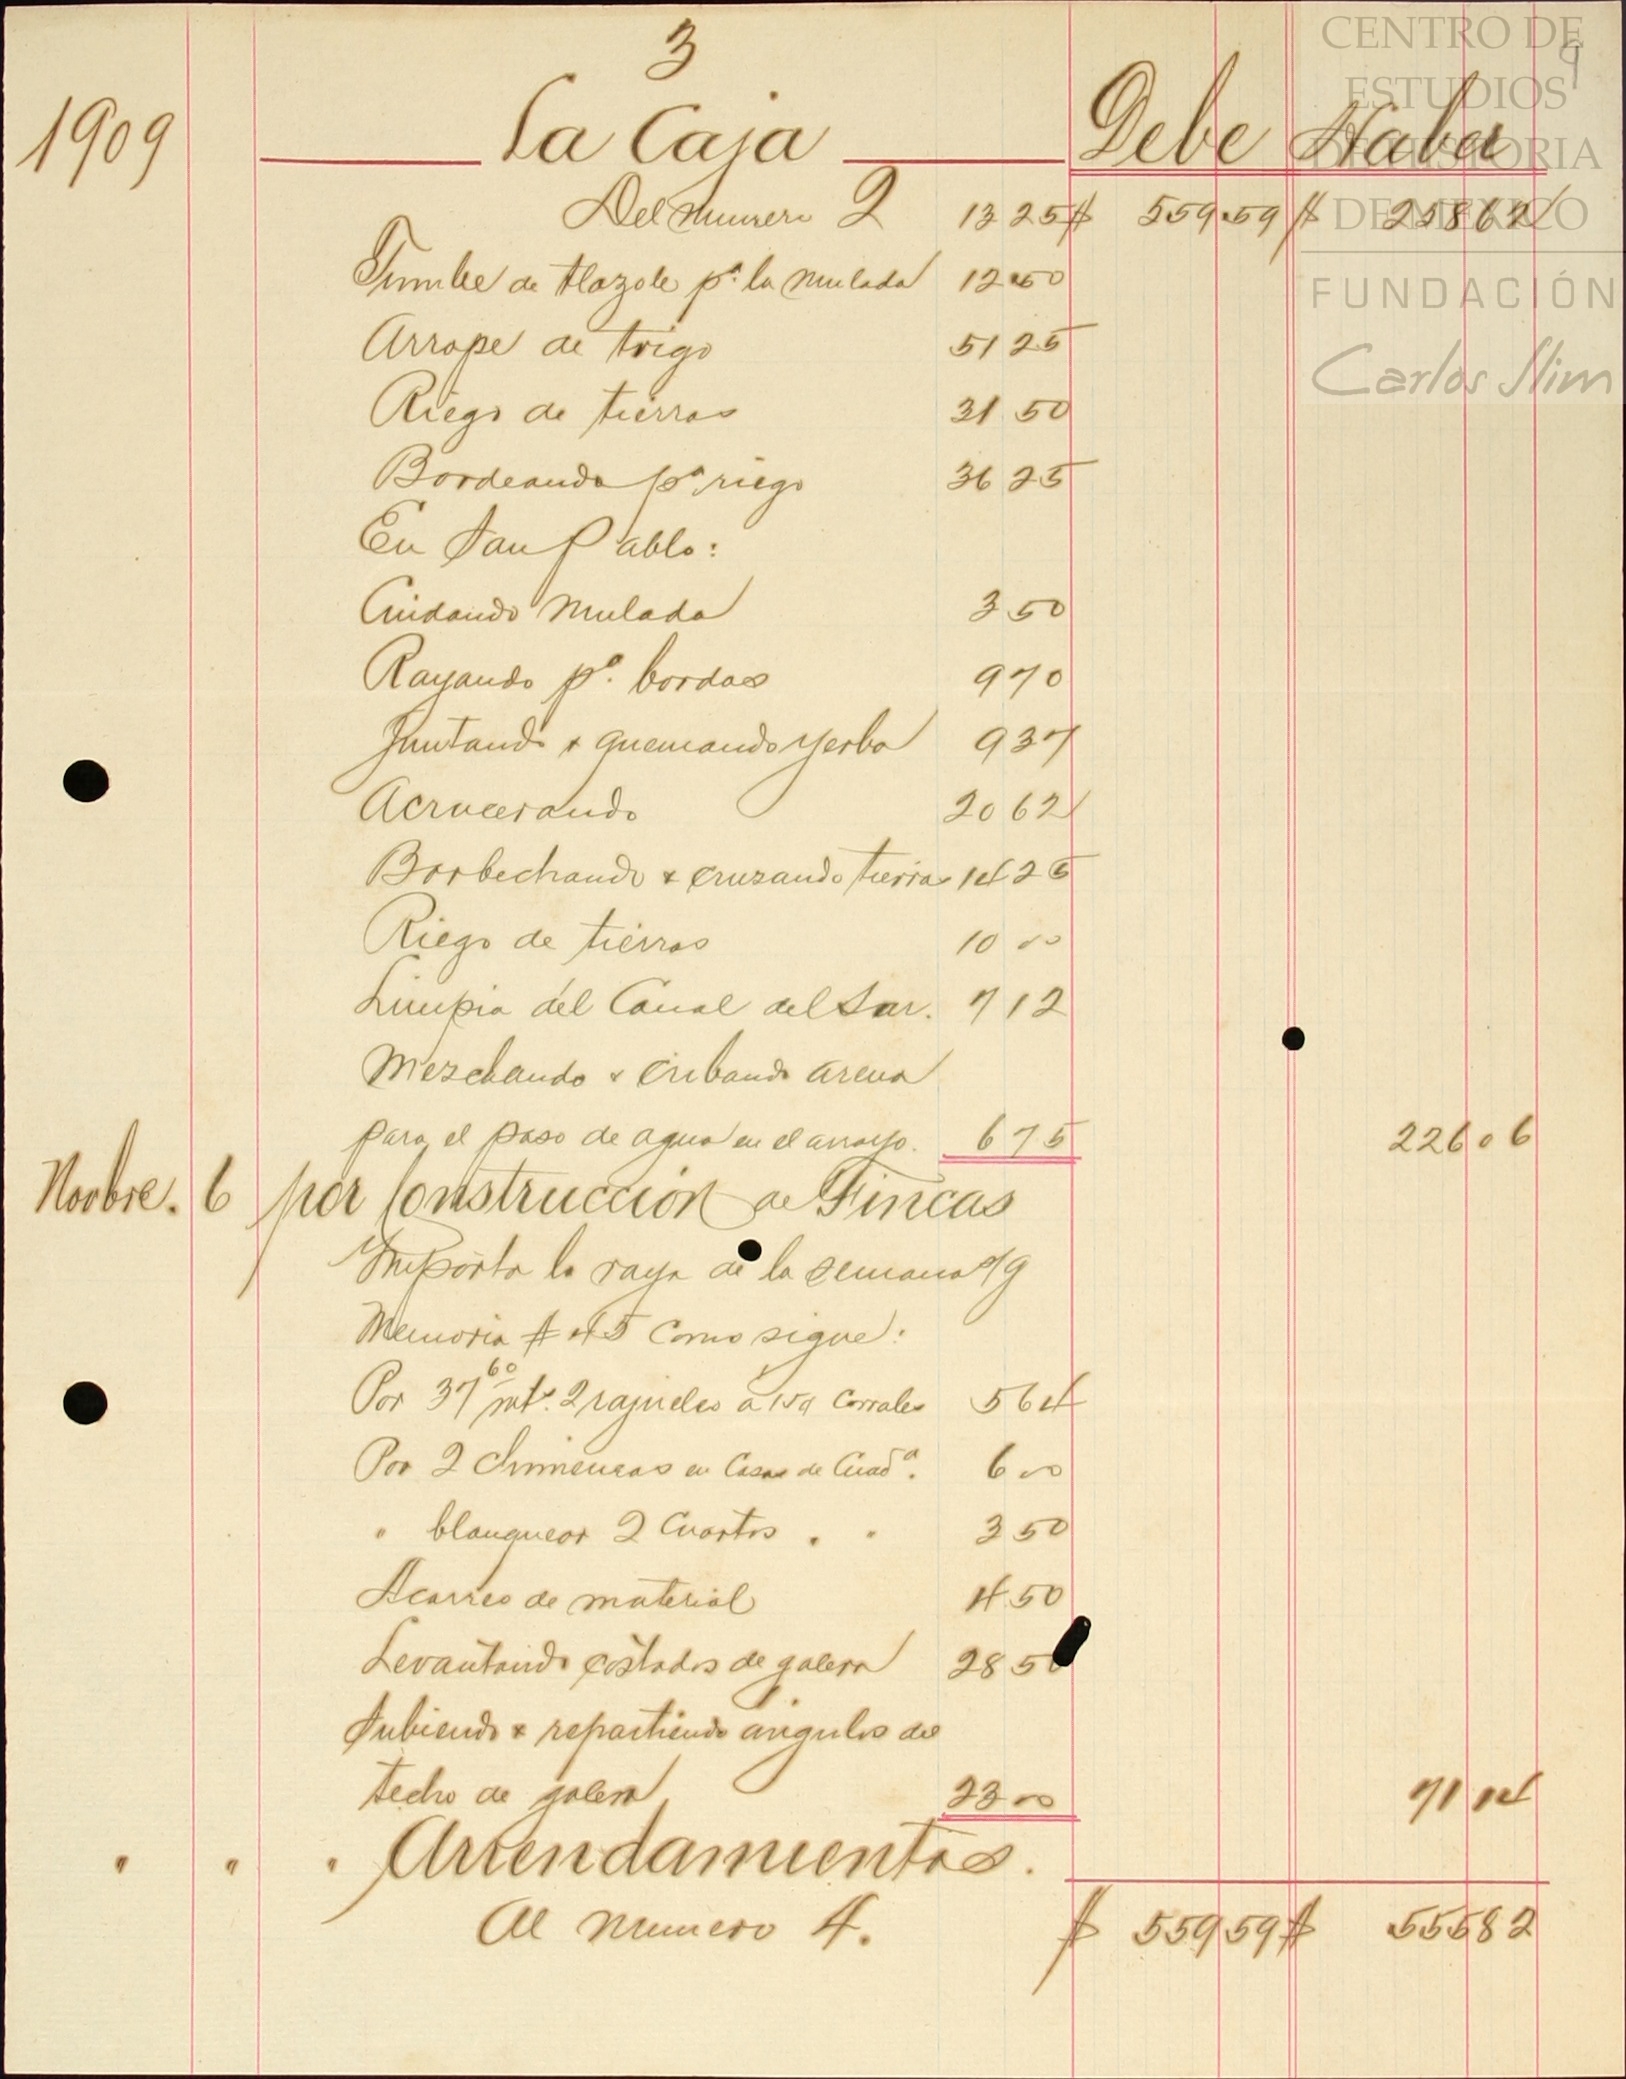 3
9
1909 La Caja Debe Haber
Del numero 2 13 25 $ 559 59 $ 258 62
Tumbe de tlazole pª la mulada 12 50
Arrope de trigo 51 25
Riego de tierras 31 50
Bordeando pª riego 36 25
En San Pablo:
Cuidando mulada 3 50
Rayando pª bordos 9 70
Juntando & quemando yerba 9 37
Acrucerando 20 62
Barbechando & cruzando tierras 14 25
Riego de tierras 10 00
Limpia del Canal del Sur. 7 12
Mezclando & cribando arena
para el paso de agua en el arroyo. 6 75 226 06
Novbre. 6 por Construcción de Fincas
Importa la raya de la semana s/g
Memoria # 45 como sigue:
Por 37 60 mts. 2 rajueleo a 15¢ Corrales 5 64
Por 2 Chimeneas en Casas de Cuadª. 6 00
" blanquear 2 Cuartos " " 3 50
Acarreo de material 4 50
Levantando costados de galera 28 50
Subiendo & repartiendo angulos del
techo de galera 23 00 71 14
" " " Arrendamientos.
Al numero 4. $ 559 59 $ 555 82
CENTRO DE
ESTUDIOS
DE HISTORIA
DE MÉXICO
FUNDACIÓN
Carlos Slim